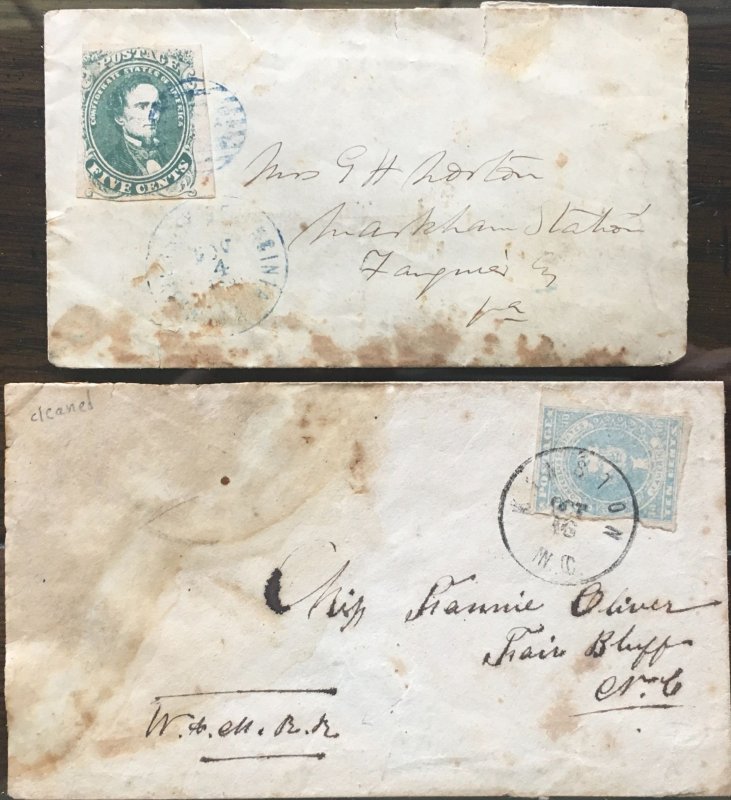 POSTAGE
CONFEDERATE STATES OF AMERICA
FIVE CENTS
4
Mrs G H Norton
Markham Station
Fauquier Co
Va
cleaned
POSTAGE
TEN CENTS
KINSTON
OCT
16
N.C.
Miss Fannie Oliver
Fair Bluff
N. C
W. & M. R. R.